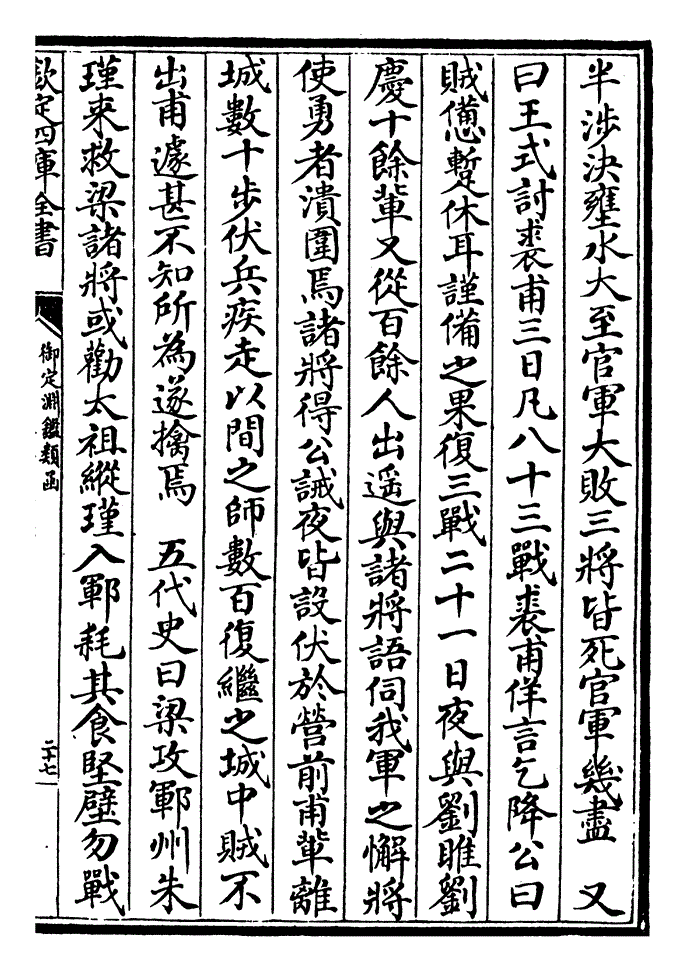 半涉決壅水大至官軍大敗三將皆死官軍幾盡　又
曰王式討裘甫三日凡八十三戰裘甫佯言乞降公曰
賊憊蹔休耳謹備之果復三戰二十一日夜與劉睢劉
慶十餘輩又從百餘人出遥與諸將語伺我軍之懈將
使勇者潰圍焉諸將得公誡夜皆設伏於營前甫軰離
城數十步伏兵疾走以間之師數百復繼之城中賊不
出甫遽甚不知所為遂擒焉　五代史曰梁攻鄆州朱
瑾来救梁諸將或勸太祖縱瑾入鄆耗其食堅壁勿戰
欽定四庫全書
御定淵鑑類函
二十七